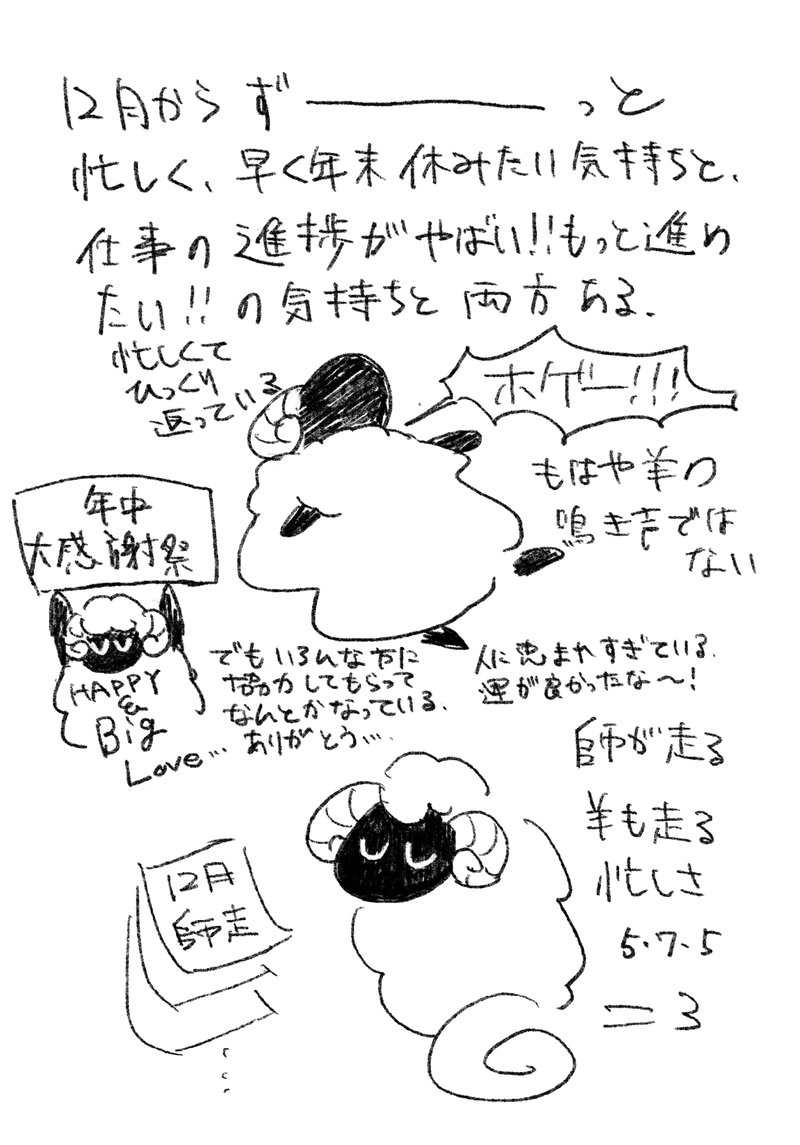 12月からず――――っと
忙しく、早く年末休みたい気持ちと、
仕事の進捗がやばい!!もっと進め
たい!!の気持ちと両方ある.
忙しくて
ひっくり
返っている
ホゲー!!!
もはや羊の
鳴き声では
ない
年中
大感謝祭
HAPPY
&
Big
Love…
でもいろんな方に
協力してもらって
なんとかなっている.
ありがとう…
人に恵まれすぎている.
運が良かったな〜!
師が走る
羊も走る
忙しさ
5・7・5
=3
12月
師走